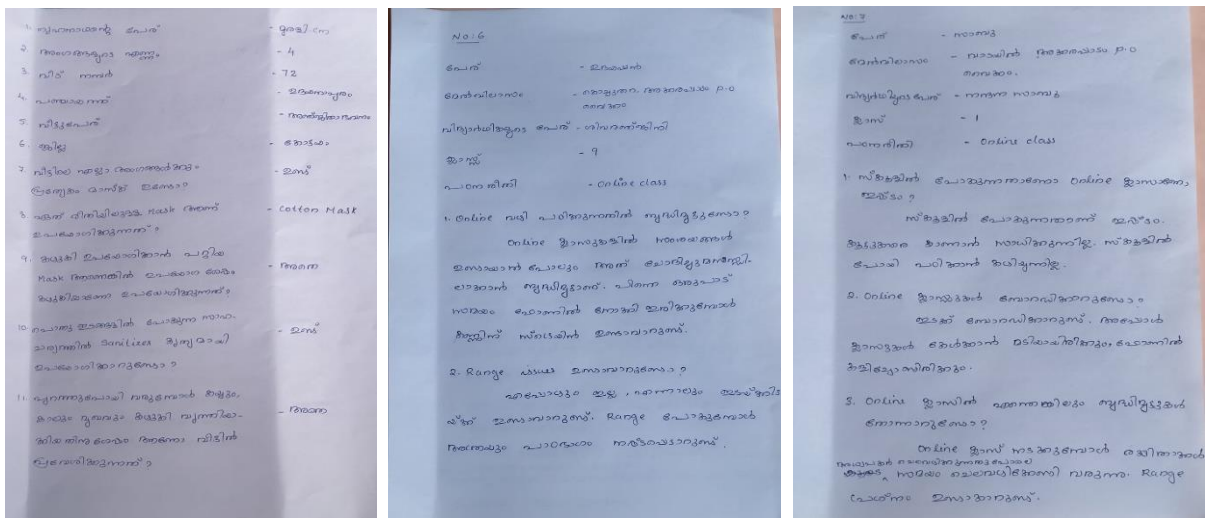 1. ഗൃഹനാഥന്റെ പേര് - മുരളി.
2. അംഗങ്ങളുടെ എണ്ണം - 4
3. വീട് നമ്പർ - 72
4. പഞ്ചായത്ത് - ഉദയനാപുരം
5. വീട്ടുപേര്
6. ജില്ല - കോട്ടയം
7. വീട്ടിലെ എല്ലാ അംഗങ്ങൾക്കും - ഉണ്ട്
പ്രത്യേകം മാസ്ക് ഉണ്ടോ?
8. ഏത് രീതിയിലുള്ള Mask ആണ് - Cotton Mask
ഉപയോഗിക്കുന്നത്?
9. കഴുകി ഉപയോഗിക്കാൻ പറ്റിയ
Mask ആണെങ്കിൽ ഉപയോഗ ശേഷം - അതെ
കഴുകിയാണോ ഉപയോഗിക്കുന്നത്?
10. പൊതു ഇടങ്ങളിൽ പോകുന്ന സാഹ- - ഉണ്ട്
ചര്യത്തിൽ Sanitizer കൃത്യമായി
ഉപയോഗിക്കാറുണ്ടോ?
11. പുറത്തുപോയി വരുമ്പോൾ കയ്യും,
കാലും മുഖവും കഴുകി വൃത്തിയാ- - അതെ
ക്കിയതിനുശേഷം ആണോ വീട്ടിൽ
പ്രവേശിക്കുന്നത്?
NO:6
പേര് - ഉദയപ്പൻ
മേൽവിലാസം - അക്കരപ്പാടം P.O
വൈക്കം
വിദ്യാർഥികളുടെ പേര് - ശിവനന്ദിനി
ക്ലാസ്സ് - 9
പഠനരീതി - Online class
1. Online വഴി പഠിക്കുന്നതിൽ ബുദ്ധിമുട്ടുണ്ടോ?
Online ക്ലാസുകളിൽ സംശയങ്ങൾ
ഉണ്ടായാൽ പോലും അത് ചോദിച്ചുമനസ്സി-
ലാക്കാൻ ബുദ്ധിമുട്ടാണ്. പിന്നെ ഒരുപാട്
സമയം ഫോണിൽ നോക്കി ഇരിക്കുമ്പോൾ
കണ്ണിന് സ്ട്രെയിൻ ഉണ്ടാവാറുണ്ട്.
2. Range പ്രശ്നം ഉണ്ടാവാറുണ്ടോ?
എപ്പോഴും ഇല്ല, എന്നാലും ഇടയ്ക്കി
യ്ക്ക് ഉണ്ടാവാറുണ്ട്. Range പോകുമ്പോൾ
അത്രയും പാഠഭാഗം നഷ്ടപ്പെടാറുണ്ട്.
NO: 7
പേര് - സാബു
മേൽവിലാസം - അക്കരപ്പാടം P.O
വൈക്കം.
വിദ്യാർഥിയുടെ പേര് - നന്ദന സാബു
ക്ലാസ് - 1
പഠനരീതി - Online class
1. സ്കൂളിൽ പോകുന്നതാണോ Online ക്ലാസാണോ,
ഇഷ്ടം?
സ്കൂളിൽ പോകുന്നതാണ് ഇഷ്ടം.
കൂട്ടുകാരെ കാണാൻ സാധിക്കുന്നില്ല. സ്കൂളിൽ
പോയി പഠിക്കാൻ കഴിയുന്നില്ല.
2. Online ക്ലാസുകൾ ബോറടിക്കാറുണ്ടോ?
ഇടക്ക് ബോറടിക്കാറുണ്ട്. അപ്പോൾ
ക്ലാസുകൾ കേൾക്കാൻ മടിയായിരിക്കും, ഫോണിൽ
കളിച്ചോണ്ടിരിക്കും.
3. Online ക്ലാസിൽ എന്തെങ്കിലും ബുദ്ധിമുട്ടുകൾ
തോന്നാറുണ്ടോ?
Online ക്ലാസ് നടക്കുമ്പോൾ രക്ഷിതാക്കൾ
അധ്യാപകർ ചെലവഴിക്കുന്നതുപോലെ
സമയം ചെലവഴിക്കേണ്ടി വരുന്നു. Range
പ്രശ്നം ഉണ്ടാകാറുണ്ട്.